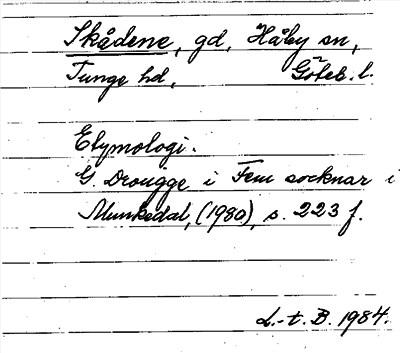 Skådene, gd, Håby sn,
Tunge hd, Göteb. l.
Etymologi.
G. Drougge i Fem socknar i
Munkedal, (1980), s. 223 f.
L.-t. B. 1984.